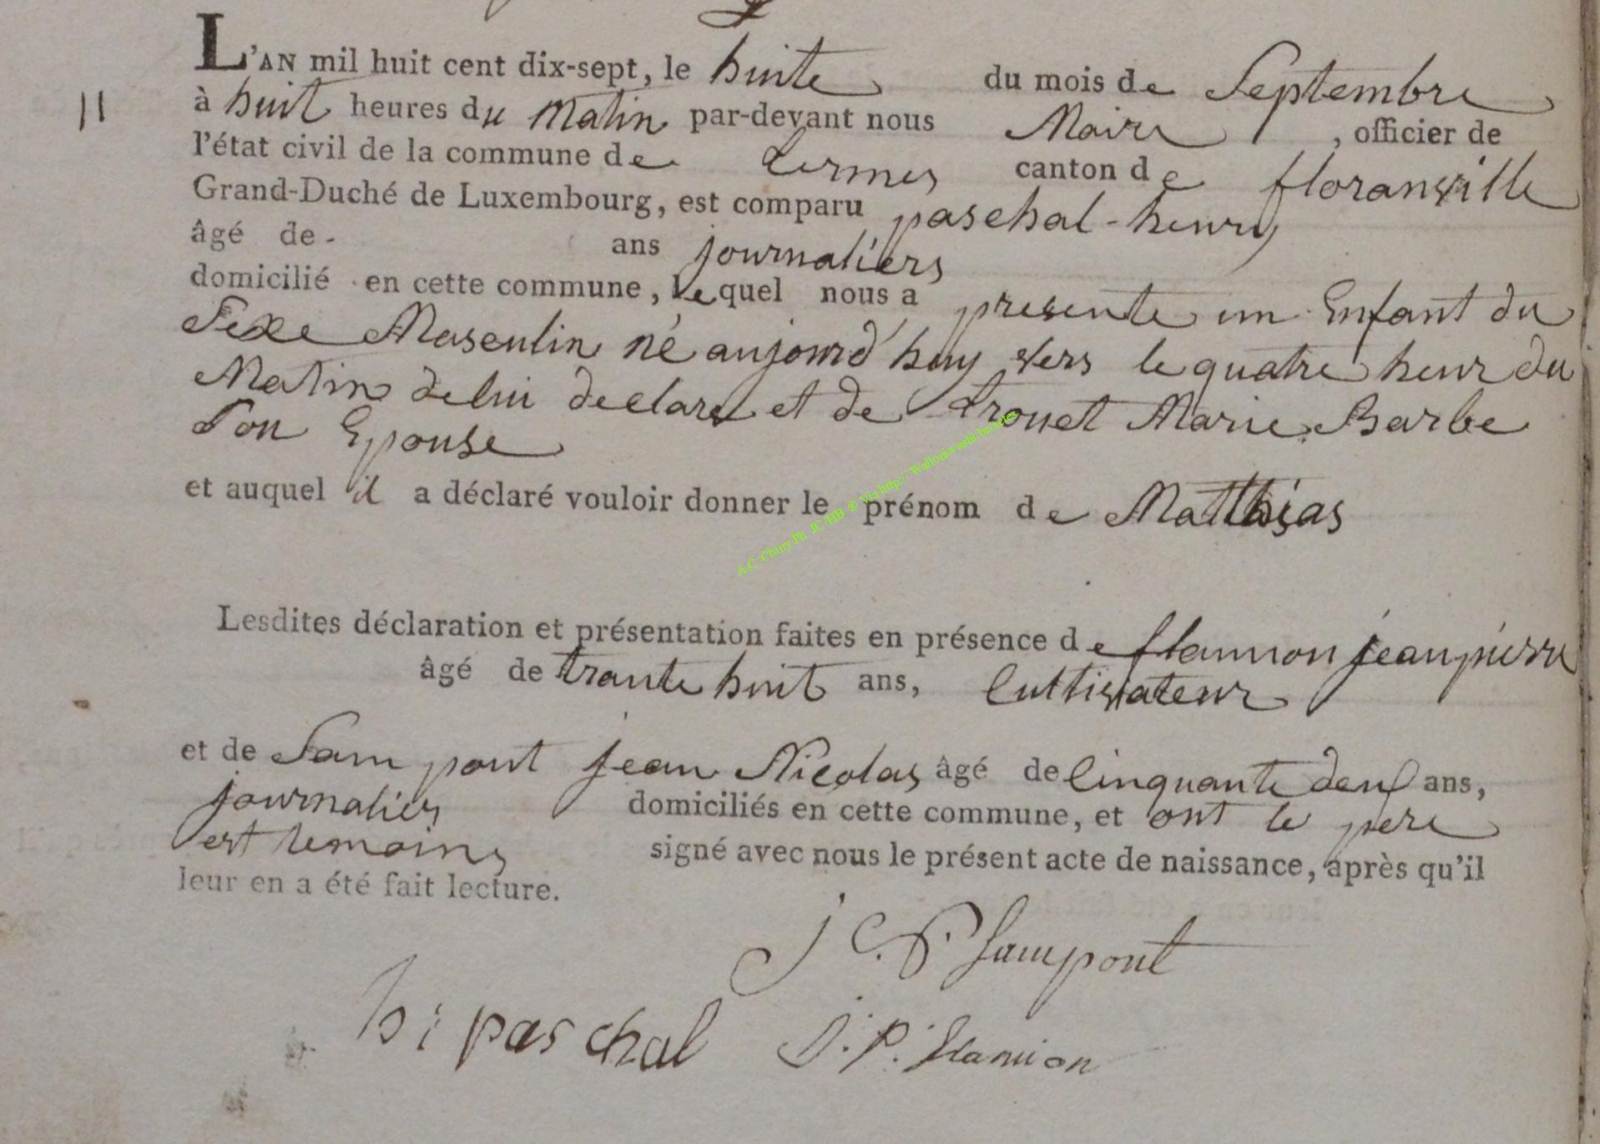 L'AN mil huit cent dix-sept, le huite du mois de Septembre
11
à huit heures du Matin par-devant nous Maire, officier de
l'état civil de la commune de Lermes canton de floranville
Grand-Duché de Luxembourg, est comparu paschal-henry
âgé de ans journaliers
domicilié en cette commune, lequel nous a presente un Enfant du
Sexe Masculin né aujourd'huy vers le quatre heur du
Matin de lui declare et de Trouet Marie Barbe
Son Epouse
et auquel il a déclaré vouloir donner le prénom de Matthias
Lesdites déclaration et présentation faites en présence de flamion jean pierre
âgé de trante huit ans, Cultivateur
et de Sampont jean Nicolas âgé de Cinquante deux ans,
journalier domiciliés en cette commune, et ont le pere
est temoins signé avec nous le présent acte de naissance, après qu'il
leur en a été fait lecture.
Sampont
h: paschal J. P. flamion